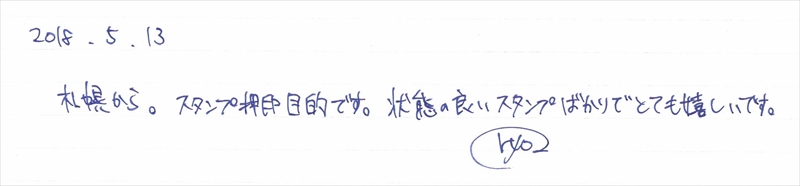 2018.5.13
札幌から。スタンプ押印目的です。状態の良いスタンプばかりでとても嬉しいです。
ryo2